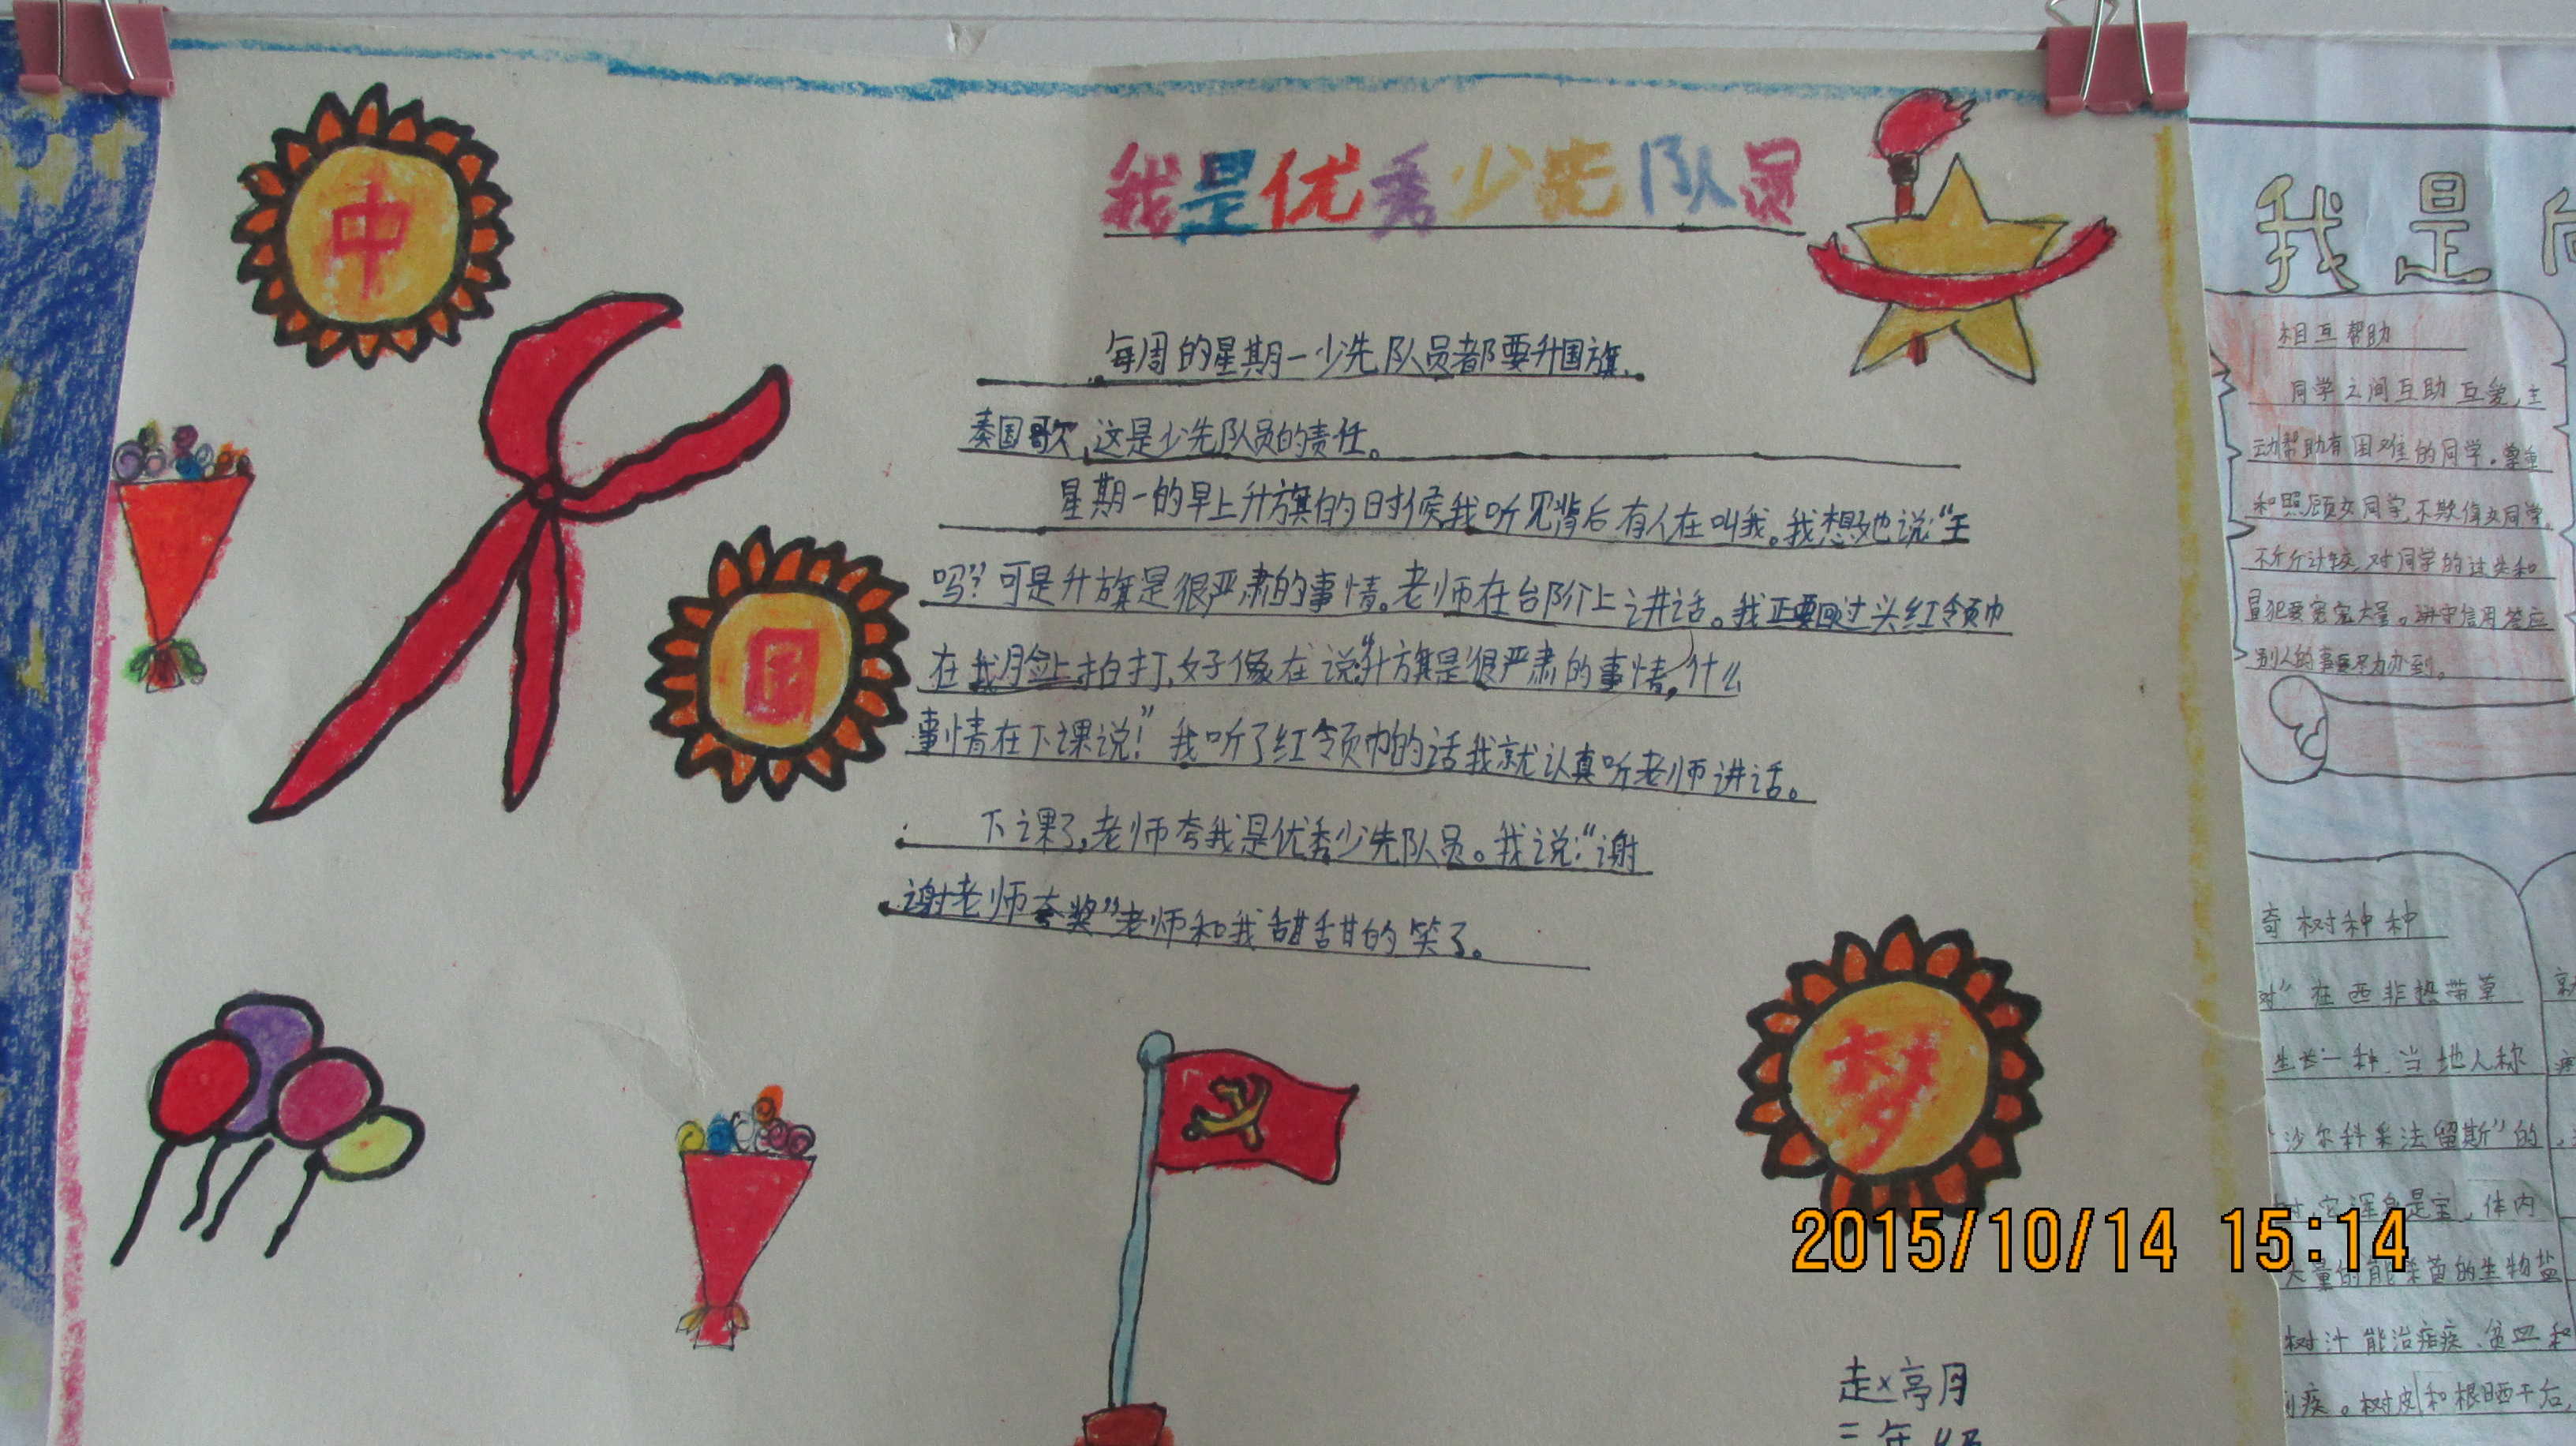 中
国
梦
我是优秀少先队员
每周的星期一少先队员都要升国旗,
奏国歌,这是少先队员的责任。
星期一的早上升旗的时候我听见背后有人在叫我。我想她说:“王
吗”?可是升旗是很严肃的事情。老师在台阶上讲话。我正要回过头红领巾
在我脸上拍打,好像在说“升旗是很严肃的事情,什么
事情在下课说!”我听了红领巾的话我就认真听老师讲话。
下课了,老师夸我是优秀少先队员。我说:“谢
谢老师夸奖”老师和我甜甜的笑了。
赵亭月
三年级
我是
相互帮助
同学之间互助互爱,主
动帮助有困难的同学。尊重
和照顾女同学,不欺侮女同学。
不斤斤计较,对同学的过失和
冒犯要宽宏大量。讲守信用答应
别人的事要尽力办到。
奇树种种
树”在西非热带草
生长一种,当地人称
“沙尔科采法留斯”的
树,它浑身是宝,体内
大量的能杀菌的生物盐
树汁能治疟疾、贫血和
痢疾。树皮和根晒干后,
2015/10/14 15:14